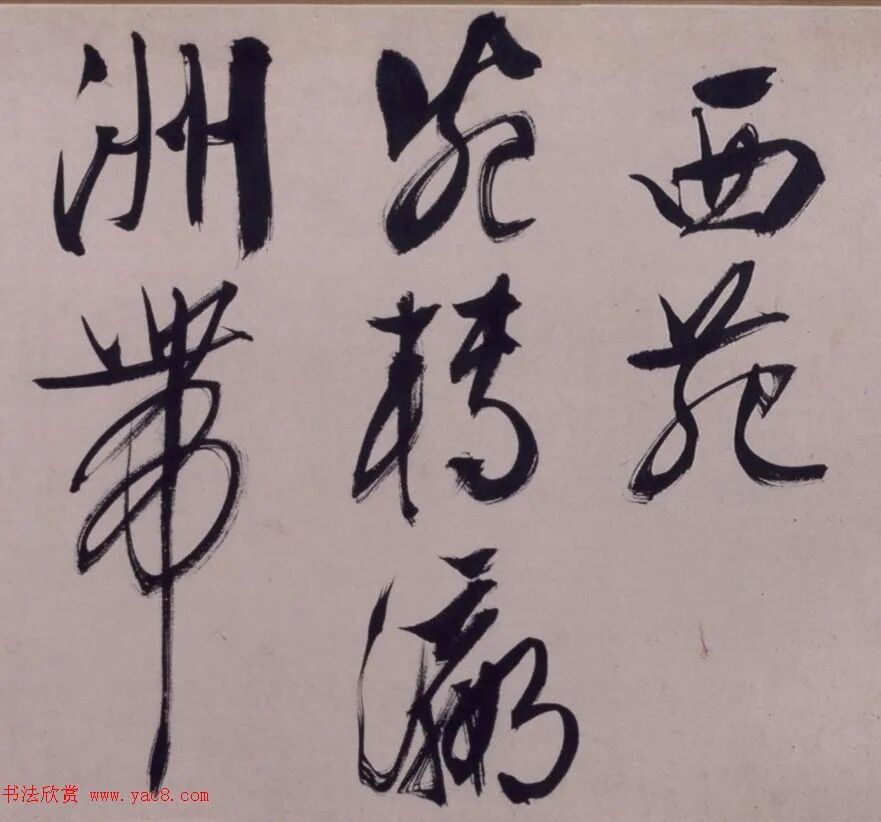 西苑
宛轉瀛
洲帶
书法欣赏 www.yac8.com